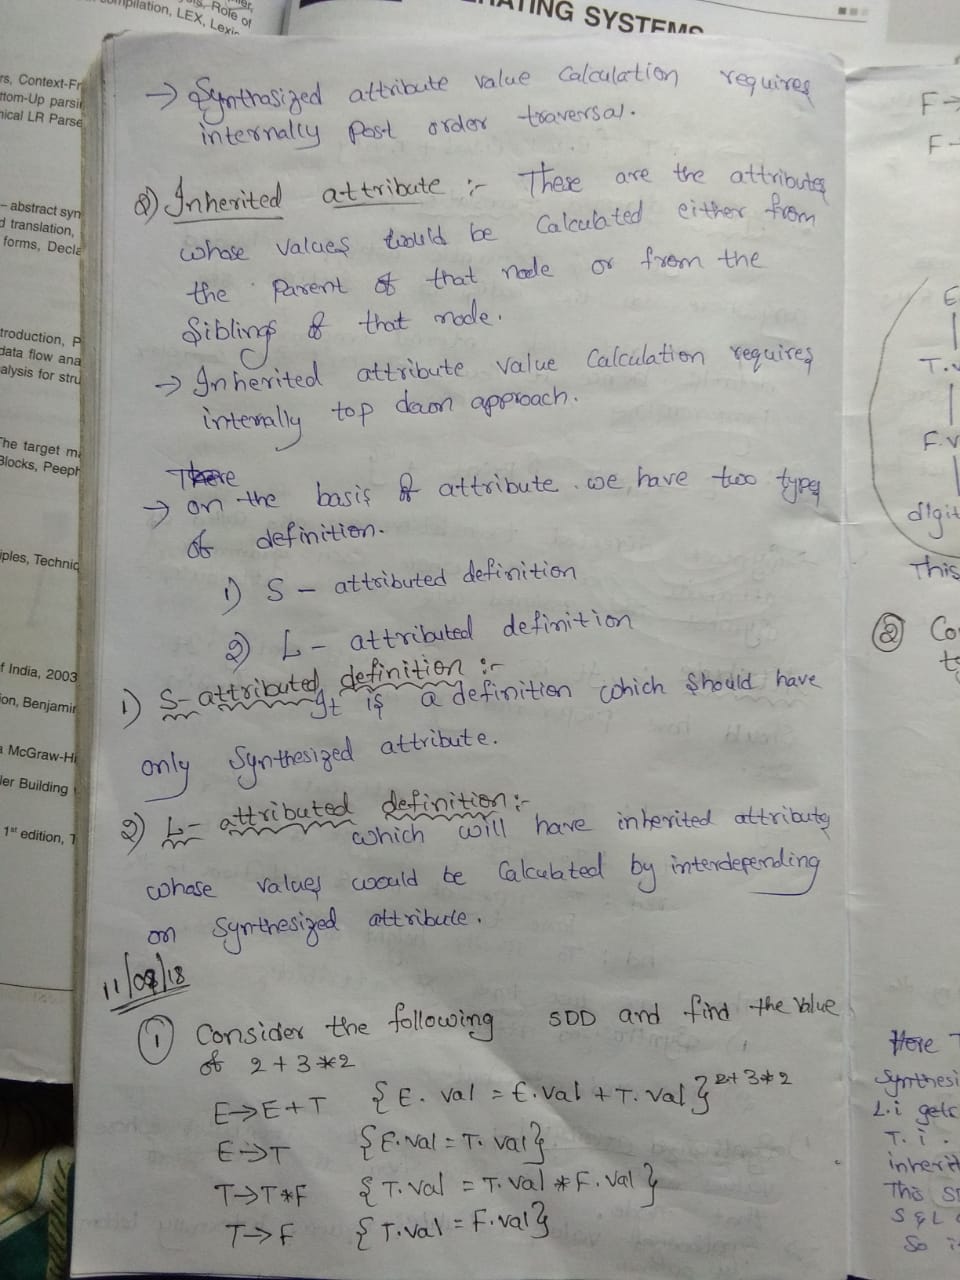 OPERATING SYSTEMS
Role of
mpilation, LEX, Lexic
rs, Context-Fr
ttom-Up parsi
nical LR Parse
– abstract syn
d translation,
forms, Decla
troduction, P
data flow ana
alysis for stru
The target ma
Blocks, Peeph
iples, Techniq
f India, 2003
ion, Benjamin
a McGraw-Hi
ler Building
1st edition, T
→ Synthasized attribute value Calculation requires
internally Post order traversal.
2) Inherited attribute :- These are the attributes
whose values would be Calculated either from
the Parent of that node or from the
Siblings of that node.
→ Inherited attribute value Calculation requires
internally top daon approach.
There
→ on the basis of attribute. we have two types
of definition.
1) S - attributed definition
2) L - attributed definition
1) S-attributed definition :-
It is a definition which Should have
only Synthesized attribute.
2) L- attributed definition :-
which will have inherited attribute
whose values would be Calculated by interdepending
on Synthesized attribute.
11/08/18
1 Consider the following SDD and find the value
of 2 + 3 * 2
E→E+T {E. val = E.val + T. val} 2+3*2
E→T {E.val = T. val}
T→T*F {T.val = T.val * F.val}
T→F {T.val = F.val}
F→
F→
E
T.v
F.v
digit
This
2 Co
Here T
Synthesi
L.i gets
T. i.
inherit
This S
S & L
So i